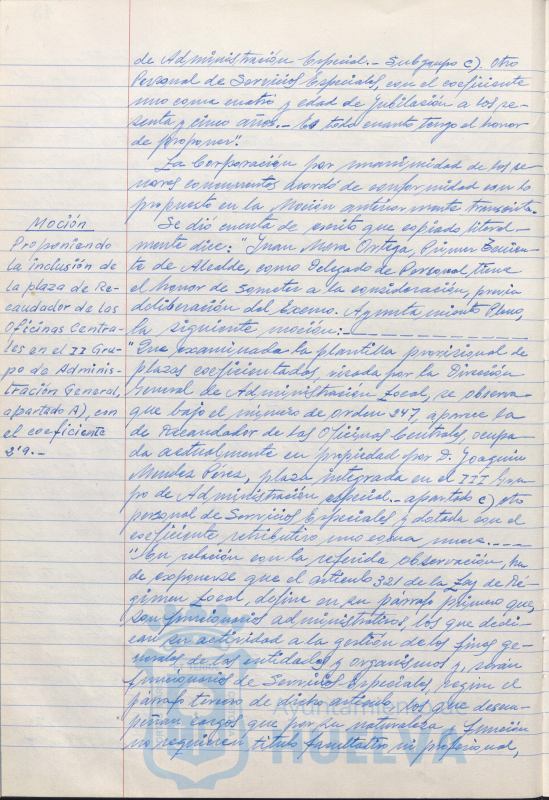 de Administración Especial.- Subgrupo C), Otro
Personal de Servicios Especiales, con el coeficiente
uno coma cuatro y edad de jubilación a los se-
senta y cinco años.- Es todo cuanto tengo el honor
de proponer".
La Corporación por unanimidad de los se-
ñores concurrentes acordó de conformidad con lo
propuesto en la Moción anteriormente transcrita.
Moción
Proponiendo
la inclusión de
la plaza de Re-
caudador de las
Oficinas Centra-
les en el II Gru-
po de Adminis-
tración General,
apartado A), con
el coeficiente
2'9.-
Se dió cuenta de escrito que copiado literal-
mente dice: "Juan Mora Ortega, Primer Tenien-
te de Alcalde, como Delegado de Personal, tiene
el honor de someter a la consideración, previa
deliberación del Excmo. Ayuntamiento Pleno,
la siguiente moción:
"Que examinada la plantilla provisional de
plazas coeficientadas visada por la Dirección
General de Administración Local, se observa
que bajo el número de orden 247, aparece la
de Recaudador de las Oficinas Centrales, ocupa-
da actualmente en propiedad por D. Joaquín
Mendez Pérez, plaza integrada en el III Gru-
po de Administración especial.- apartado C) otro
personal de Servicios Especiales y dotada con el
coeficiente retributivo uno coma nueve.
"En relación con la referida observación, ha
de exponerse que el artículo 321 de la Ley de Ré-
gimen Local, define en su párrafo primero que,
son funcionarios administrativos, los que dedi-
can su actividad a la gestión de los fines ge-
nerales de las entidades y organismos y, serán
funcionarios de Servicios Especiales, según el
párrafo tercero de dicho artículo, los que desem-
peñan cargos que por su naturaleza y función
no requieren título facultativo ni profesional,
HUELVA